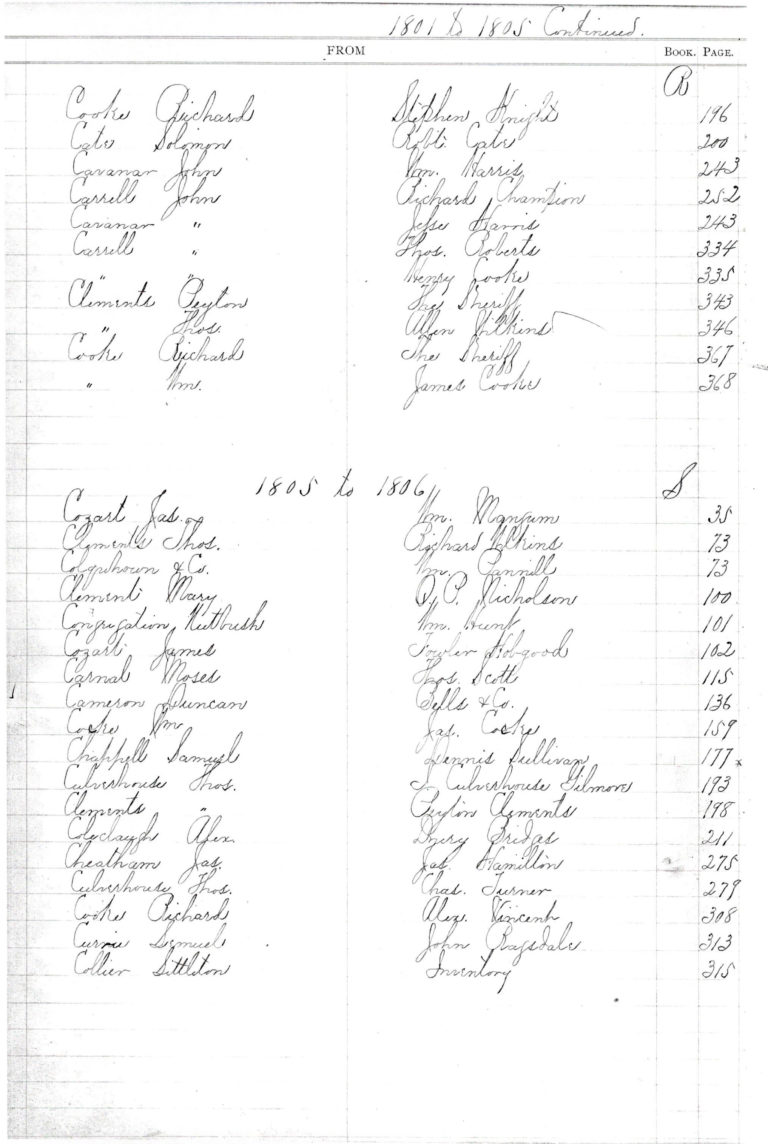 1801 to 1805 Continued.
FROM BOOK. PAGE.
R
Cooke Richard Stephen Knight 196
Cate Solomon Robt. Cate 200
Cavanar John Wm. Harris 243
Carrell John Richard Champion 252
Cavanar " Jesse Harris 243
Carrell " Thos. Roberts 334
" " Henry Cooke 335
Clements Peyton The Sheriff 343
" Thos. Allen Wilkins 346
Cooke Richard The Sheriff 367
" Wm. James Cooke 368
1805 to 1806 S
Cozart Jas. Wm. Mangum 35
Clements Thos. Richard Wilkins 73
Colquhoun & Co. Wm. Pannill 73
Clement Mary P. Nicholson 100
Congregation Nutbush Wm. Hunt 101
Cozart James Fowler Hobgood 102
Carnal Moses Thos. Scott 115
Cameron Duncan Bells & Co. 136
Cooke Wm Jas. Cooke 159
Chappell Samuel Dennis Sullivan 177
Culverhouse Thos. Culverhouse Gilmore 193
Clements " Peyton Clements 198
Coleclaugh Alex. Drury Bridges 211
Cheatham Jas. Jas. Hamilton 275
Culverhouse Thos. Chas. Turner 279
Cooke Richard Alex. Vincent 308
Currie Lemuel John Ragsdale 313
Collier Littleton Inventory 315